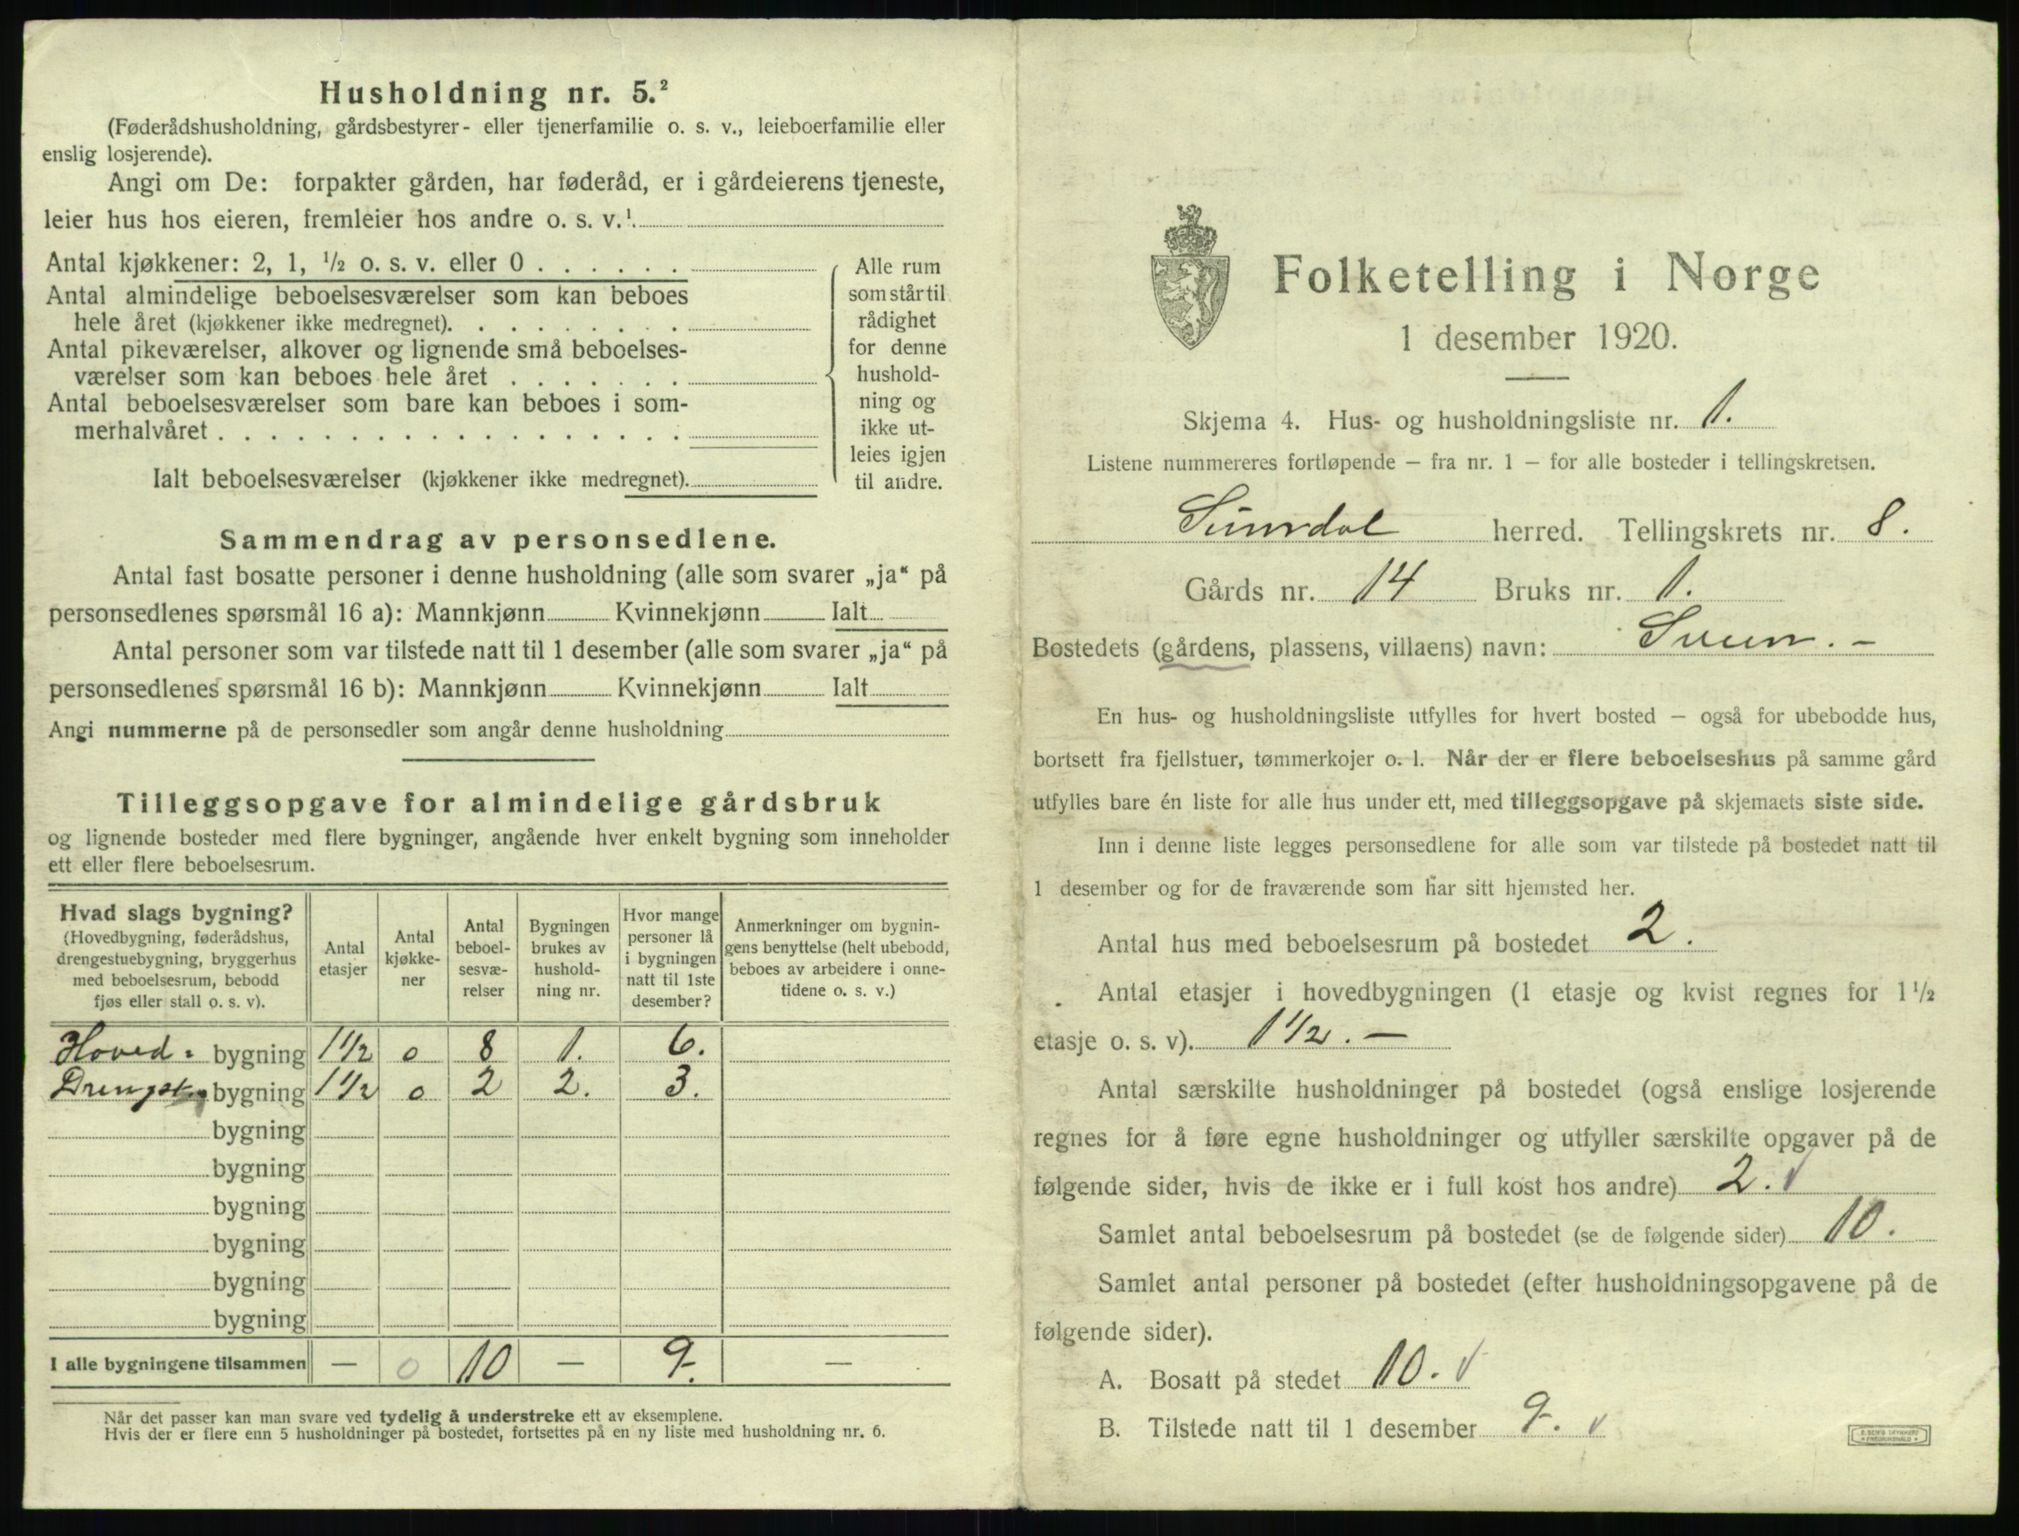 Husholdning nr. 5.²
(Føderådshusholdning, gårdsbestyrer- eller tjenerfamilie o. s. v., leieboerfamilie eller
enslig losjerende).
Angi om De: forpakter gården, har føderåd, er i gårdeierens tjeneste,
leier hus hos eieren, fremleier hos andre o. s. v.¹
Antal kjøkkener: 2, 1, ½ o. s. v. eller 0 . . . . . .
Antal almindelige beboelsesværelser som kan beboes
hele året (kjøkkener ikke medregnet). . . . . . . . .
Antal pikeværelser, alkover og lignende små beboelses-
værelser som kan beboes hele året . . . . . . .
Antal beboelsesværelser som bare kan beboes i som-
merhalvåret . . . . . . . . . . . . . . . . . .
Ialt beboelsesværelser (kjøkkener ikke medregnet).
Alle rum
som står til
rådighet
for denne
hushold-
ning og
ikke ut-
leies igjen
til andre.
Sammendrag av personsedlene.
Antal fast bosatte personer i denne husholdning (alle som svarer „ja“ på
personsedlenes spørsmål 16 a): Mannkjønn Kvinnekjønn Ialt
Antal personer som var tilstede natt til 1 desember (alle som svarer „ja“ på
personsedlenes spørsmål 16 b): Mannkjønn Kvinnekjønn Ialt
Angi nummerne på de personsedler som angår denne husholdning
Tilleggsopgave for almindelige gårdsbruk
og lignende bosteder med flere bygninger, angående hver enkelt bygning som inneholder
ett eller flere beboelsesrum.
Hvad slags bygning?
(Hovedbygning, føderådshus,
drengestuebygning, bryggerhus
med beboelsesrum, bebodd
fjøs eller stall o. s. v).
Antal
etasjer
Antal
kjøkke-
ner
Antal
beboel-
sesvæ-
relser
Bygningen
brukes av
hushold-
ning nr.
Hvor mange
personer lå
i bygningen
natt til 1ste
desember?
Anmerkninger om bygnin-
gens benyttelse (helt ubebodd,
beboes av arbeidere i onne-
tidene o. s. v.)
Hoved- bygning 1½ 0 8 1. 6.
Drengst. bygning 1½ 0 2 2. 3.
bygning
bygning
bygning
bygning
bygning
bygning
I alle bygningene tilsammen — 0 10 — 9. —
Når det passer kan man svare ved tydelig å understreke ett av eksemplene.
Hvis der er flere enn 5 husholdninger på bostedet, fortsettes på en ny liste med husholdning nr. 6.
Folketelling i Norge
1 desember 1920.
Skjema 4. Hus- og husholdningsliste nr. 1.
Listene nummereres fortløpende – fra nr. 1 – for alle bosteder i tellingskretsen.
Sunndal herred. Tellingskrets nr. 8.
Gårds nr. 14 Bruks nr. 1.
Bostedets (gårdens, plassens, villaens) navn: Sveen. –
En hus- og husholdningsliste utfylles for hvert bosted – også for ubebodde hus,
bortsett fra fjellstuer, tømmerkojer o. l. Når der er flere beboelseshus på samme gård
utfylles bare én liste for alle hus under ett, med tilleggsopgave på skjemaets siste side.
Inn i denne liste legges personsedlene for alle som var tilstede på bostedet natt til
1 desember og for de fraværende som har sitt hjemsted her.
Antal hus med beboelsesrum på bostedet 2.
Antal etasjer i hovedbygningen (1 etasje og kvist regnes for 1½
etasje o. s. v). 1½. –
Antal særskilte husholdninger på bostedet (også enslige losjerende
regnes for å føre egne husholdninger og utfyller særskilte opgaver på de
følgende sider, hvis de ikke er i full kost hos andre) 2. √
Samlet antal beboelsesrum på bostedet (se de følgende sider) 10.
Samlet antal personer på bostedet (efter husholdningsopgavene på de
følgende sider).
A. Bosatt på stedet 10. √
B. Tilstede natt til 1 desember 9. √